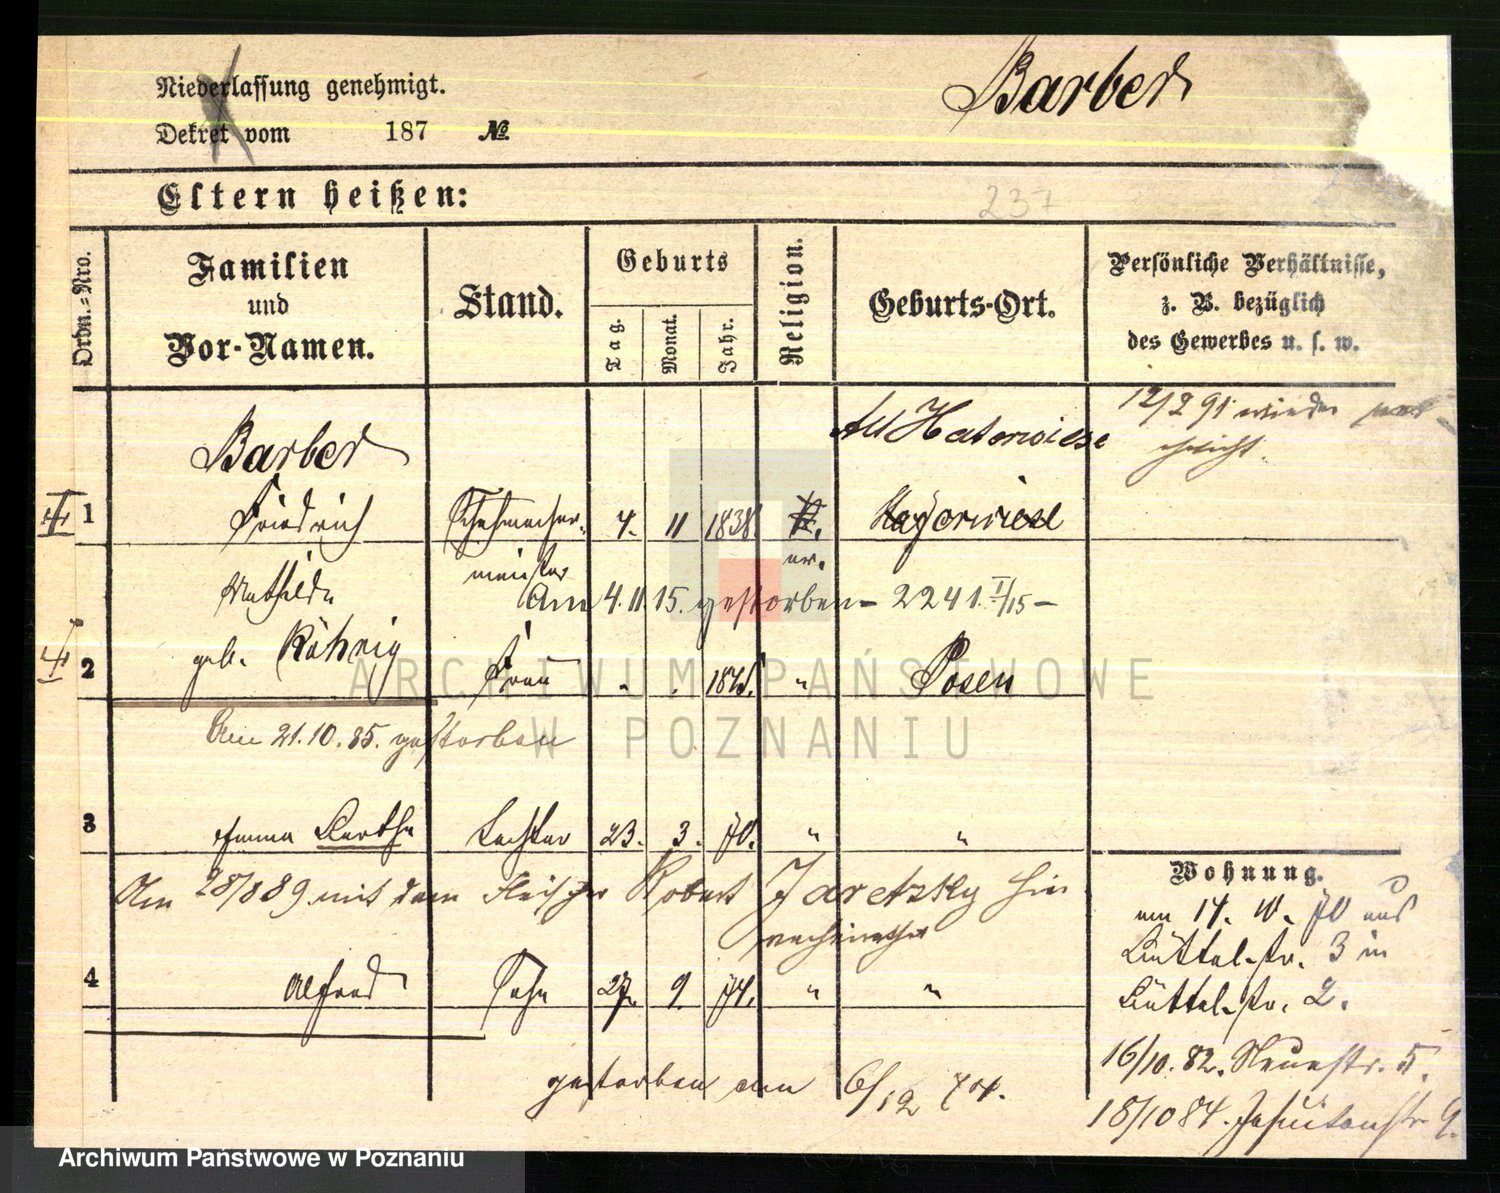 Niederlassung genehmigt.
Dekret vom 187 №
Barber
Eltern heißen:
237
Ordn.=Nro.
Familien
und
Vor-Namen.
Stand.
Geburts
Tag.
Monat.
Jahr.
Religion.
Geburts-Ort.
Persönliche Verhältnisse,
z. B. bezüglich
des Gewerbes u. s. w.
12/2 91 wieder
Barber
Alt Hatorwiese
1 Friedrich 4. 11 1838.
meister
ev.
Mathilde
Am 4.11.15. gestorben – 2241 I/15 –
geb. Röhrig
2 Frau " " " Posen
Am 21.10.85. gestorben
3 Emma Bertha Tochter 23. 3. 70. " "
Am 28/8 89 mit dem Fleischer Robert Jaretzky hier
verheirathet
4 Alfred Sohn 27. 9. 74. " "
gestorben am 6/12 74.
Wohnung.
am 14. 10. 70 aus
Büttel-str. 3 in
Büttel-str. 2.
16/10. 82. Neuestr. 5.
18/10 84. Jesuitenstr. 9.
ARCHIWUM PAŃSTWOWE
W POZNANIU
Archiwum Państwowe w Poznaniu